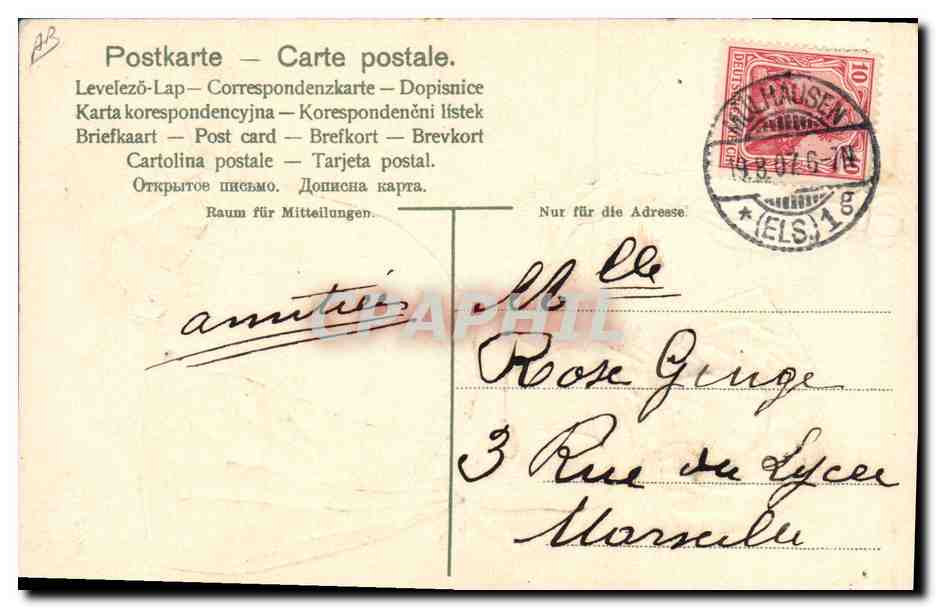 AB
Postkarte — Carte postale.
Levelező-Lap — Correspondenzkarte — Dopisnice
Karta korespondencyjna — Korespondenčni lístek
Briefkaart — Post card — Brefkort — Brevkort
Cartolina postale — Tarjeta postal.
Открытое письмо. Дописна карта.
Raum für Mitteilungen.
Nur für die Adresse.
10
DEUTSCHES REICH
10
MÜLHAUSEN
19.8.07. 6-7N
* (ELS.) 1 g
amitiés
CPAPHIL
Mlle
Rose Ginge
3 Rue du Lycée
Marseille